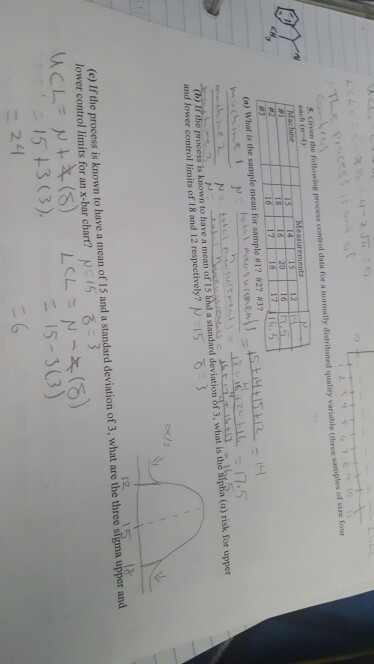 The process is out of
control
5. Given the following process control data for a normally distributed quality variable (three samples of size four
each (n=4).
Measurements
Machine
#1 15 14 15 12
#2 18 16 20 16 17.5
#3 16 17 16 17 16.5
(a) What is the sample mean for sample #1? #2? #3?
machine 1 μ = total measurements = 15+14+15+12 = 14
machine 2 μ = total measurements = 18+16+20+16 = 17.5
(b) If the process is known to have a mean of 15 and a standard deviation of 3, what is the alpha (α) risk for upper
and lower control limits of 18 and 12 respectively? μ=15 σ=3
α/2
12 15 18
(c) If the process is known to have a mean of 15 and a standard deviation of 3, what are the three sigma upper and
lower control limits for an x-bar chart? μ=15 σ=3
UCL = μ + x(σ) LCL = μ - x(σ)
= 15+3(3) = 15-3(3)
= 24 = 6
CH3